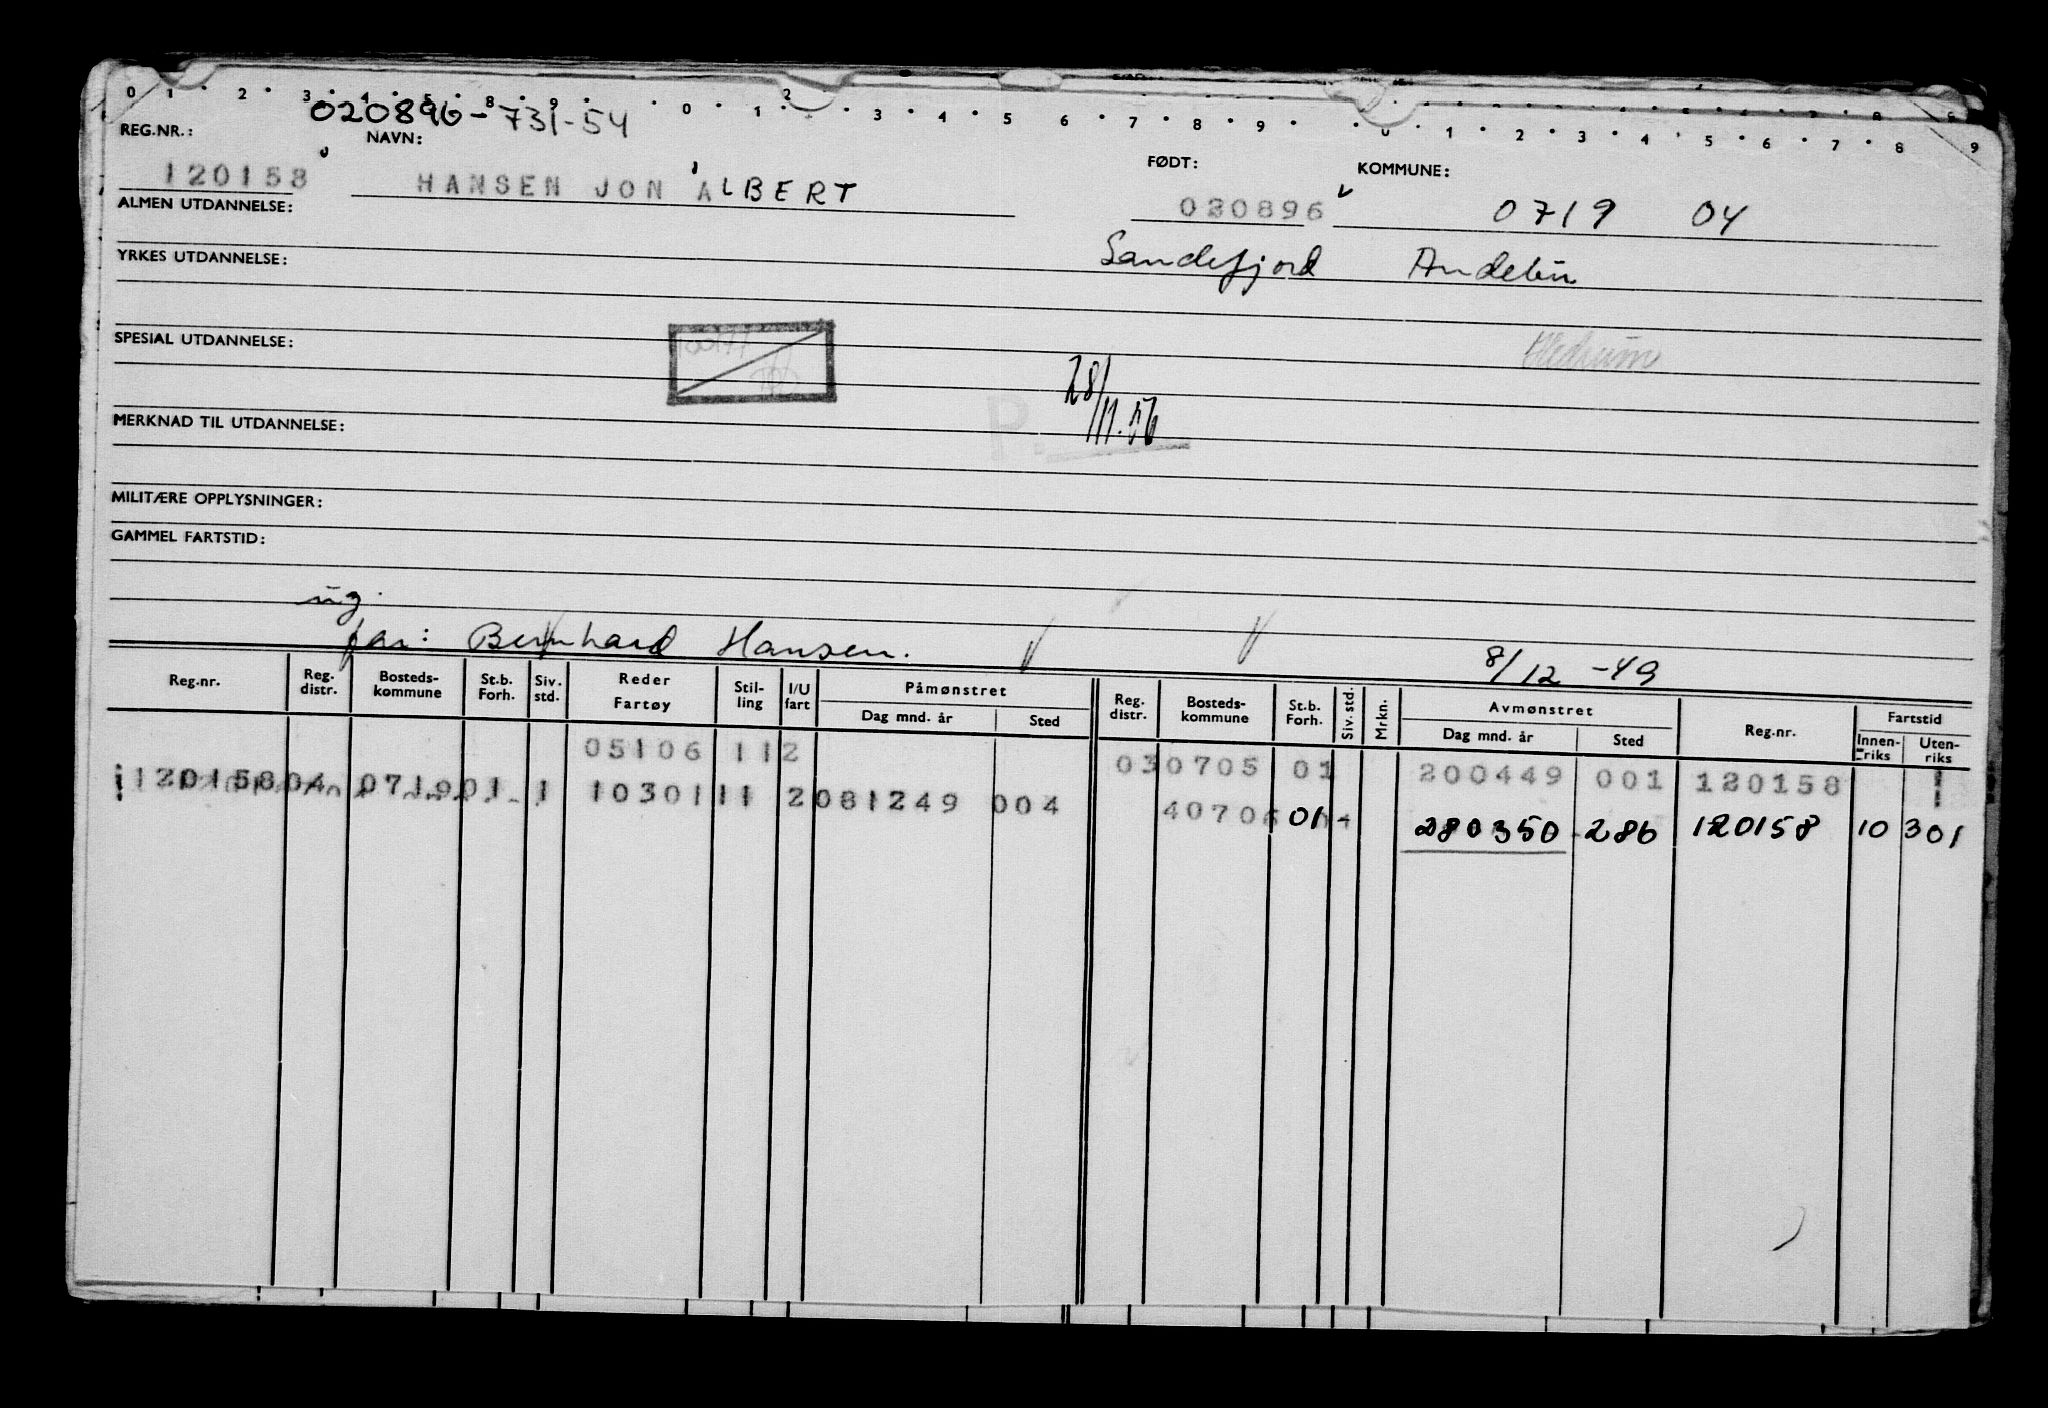 0 1 2 3 4 5 8 9 0 1 2 3 4 5 6 7 8 9 0 1 2 3 4 5 6 7 8 9
020896-731-54
REG.NR.: NAVN: FØDT: KOMMUNE:
120158 HANSEN JON ALBERT 020896 0719 04
ALMEN UTDANNELSE:
Sandefjord Andebu
YRKES UTDANNELSE:
Hedrum
SPESIAL UTDANNELSE:
28/11.56
P.
MERKNAD TIL UTDANNELSE:
MILITÆRE OPPLYSNINGER:
GAMMEL FARTSTID:
ug.
far: Bernhard Hansen. 8/12 -49
Reg.nr. Reg. distr. Bosteds-kommune St.b. Forh. Siv. std. Reder Fartøy Stil-ling I/U fart Påmønstret Dag mnd. år Sted Reg. distr. Bosteds-kommune St.b. Forh. Siv. std. Mrkn. Avmønstret Dag mnd. år Sted Reg.nr. Fartstid Innen-riks Uten-riks
05106 11 2 03 0705 01 200449 001 120158
120158 04 0719 01 1 10301 11 2 081249 004 4 0706 01 280350 286 120158 10 301